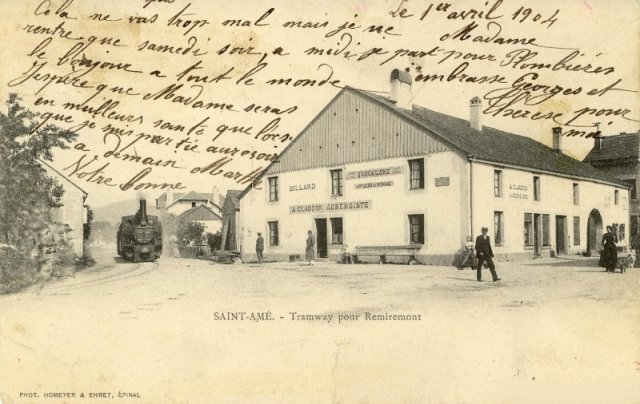 Le 1er avril 1904
Madame
Cela ne vas trop mal mais je ne
rentre que samedi soir, a midi je part pour Plombières
le bonjour a tout le monde
J'espère que Madame seras
en meilleurs santé que lors
que je mis partie au resoir
a demain Marthe
Votre bonne
embrasse Georges et
Therese pour
moi
BILLARD
QUINCAILLERIE
A. CLAUDON, AUBERGISTE
A. CLAUDON
AUBERGISTE
SAINT-AMÉ. - Tramway pour Remiremont
PHOT. HOMEYER & EHRET, ÉPINAL